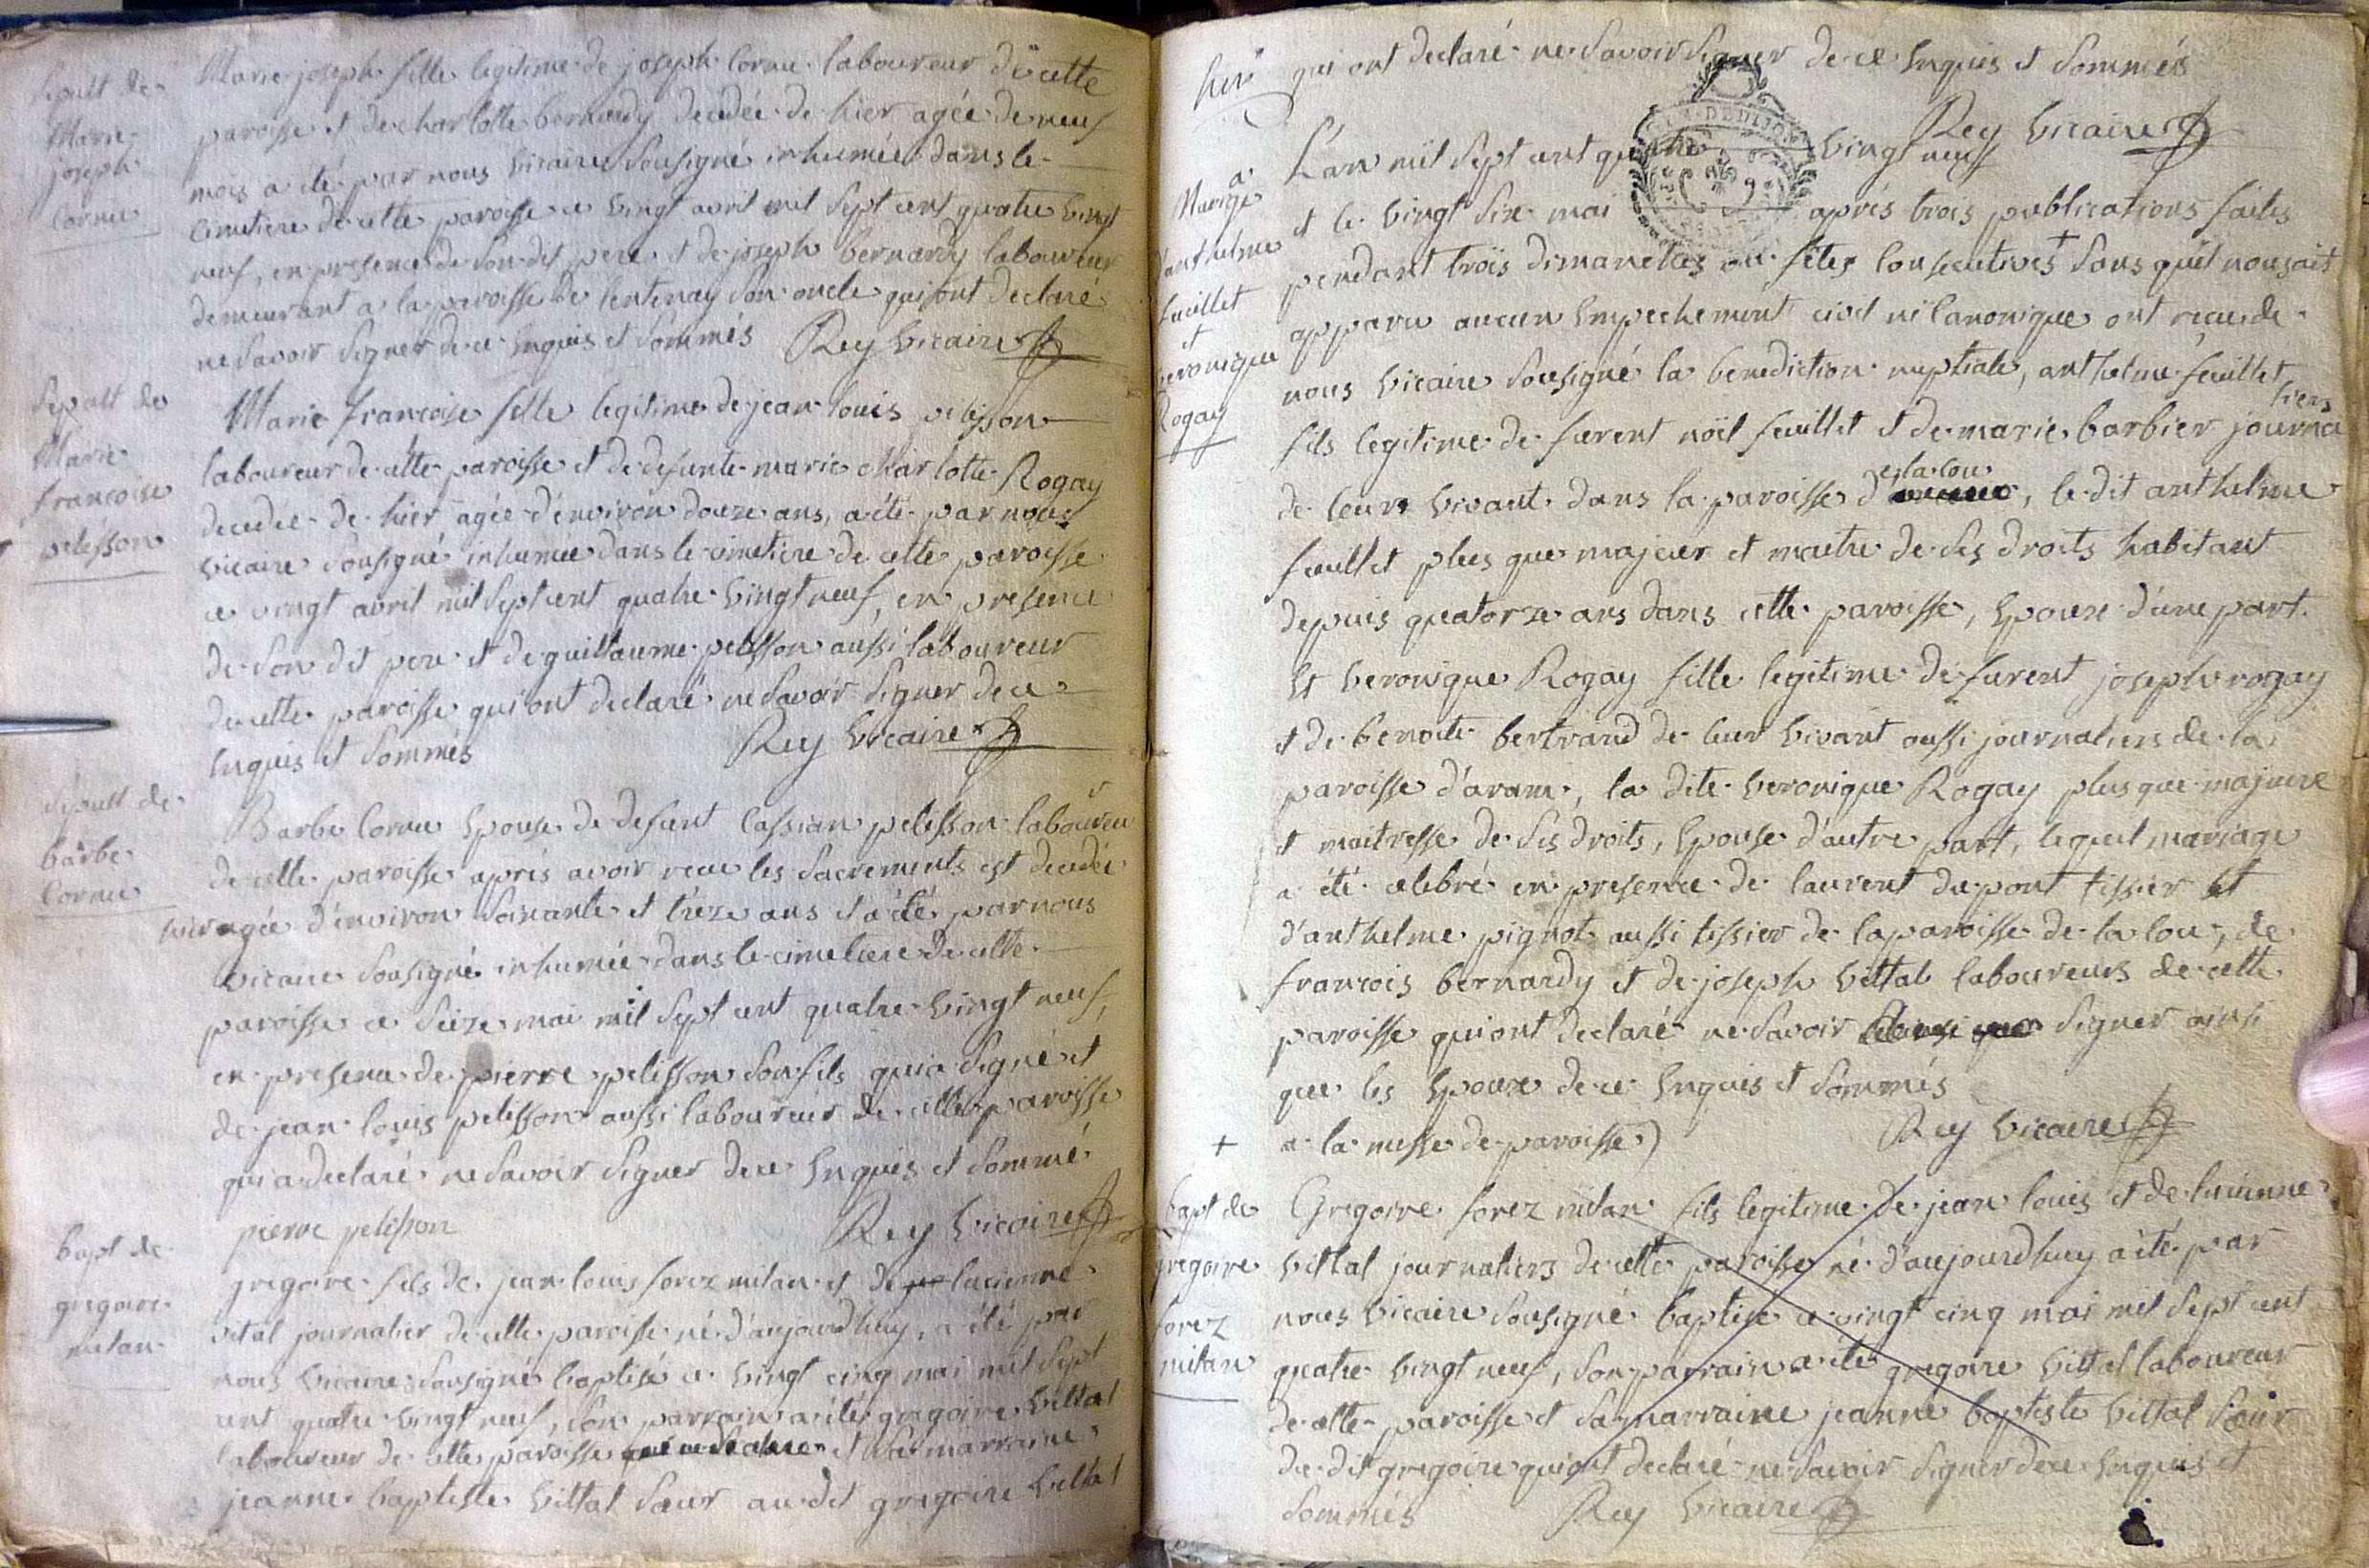 Sepult de
Marie
joseph
Cornu
Marie joseph fille legitime de joseph Cornu laboureur de cette
paroisse et de charlotte bernardy decedée de hier agée de neuf
mois a été par nous vicaire sousigné inhumée dans le
cimetiere de cette paroisse ce vingt avril mil sept cent quatre vingt
neuf, en presence de son dit pere et de joseph bernardy laboureur
demeurant a la paroisse de lentenay son oncle qui ont declaré
ne savoir signer de ce enquis et sommés Rey vicaire
Sepult de
Marie
francoise
pelisson
Marie francoise fille legitime de jean louis pelisson
laboureur de cette paroisse et de defunte marie charlotte Rogay
decedée de hier agée d'environ douze ans, a été par nous
vicaire sousigné inhumée dans le cimetiere de cette paroisse
ce vingt avril mil sept cent quatre vingt neuf, en presence
de son dit pere et de guillaume pelisson aussi laboureur
de cette paroisse qui ont declaré ne savoir signer de ce
enquis et sommés Rey vicaire
Sepult de
barbe
Cornu
Barbe Cornu epouse de defunt Cassian pelisson laboureur
de cette paroisse aprés avoir recu les sacrements est decedée
hier agée d'environ soixante et treze ans et a été par nous
vicaire sousigné inhumée dans le cimetiere de cette
paroisse ce seize mai mil sept cent quatre vingt neuf,
en presence de pierre pelisson son fils qui a signé et
de jean louis pelisson aussi laboureur de cette paroisse
qui a declaré ne savoir signer de ce enquis et sommé
pierre pelisson Rey vicaire
bapt de
gregoire
milan
gregoire fils de jean louis forez milan et de lucienne
vital journalier de cette paroisse né d'aujourdhuy, a été par
nous vicaire sousigné baptisé ce vingt cinq mai mil sept
cent quatre vingt neuf, son parrain a été gregoire vittal
laboureur de cette paroisse et sa marraine
jeanne baptiste vittal sœur au dit gregoire vittal
qui ont declaré ne savoir signer de ce enquis et sommés
Rey vicaire
Mariage
d'anthelme
feuillet
et
veronique
Rogay
L'an mil sept cent quatre vingt neuf
et le vingt six mai aprés trois publications faites
pendant trois dimanches ou fêtes consecutives + sans qu'il nous ait
apparu aucun empechement civil ni canonique ont recu de
nous vicaire sousigné la benediction nuptiale, anthelme feuillet
fils legitime de furent noël feuillet et de marie barbier journaliers
de leur vivant dans la paroisse de la lou, le dit anthelme
feuillet plus que majeur et maitre de ses droits habitant
depuis quatorze ans dans cette paroisse, epoux d'une part.
Et veronique Rogay fille legitime de furent joseph rogay
et de benoite bertrand de leur vivant aussi journaliers de la
paroisse d'aranc, la dite veronique Rogay plus que majeure
et maitresse de ses droits, epouse d'autre part, lequel mariage
a été celebré en presence de laurent dupont tissier et
d'anthelme pignot aussi tissier de la paroisse de la lou, de
francois bernardy et de joseph vittal laboureurs de cette
paroisse qui ont declaré ne savoir signer ainsi
que les epoux de ce enquis et sommés
+ a la messe de paroisse) Rey vicaire
bapt de
gregoire
forez
milan
Gregoire forez milan fils legitime de jean louis et de lucienne
vittal journaliers de cette paroisse né d'aujourdhuy a été par
nous vicaire sousigné baptisé ce vingt cinq mai mil sept cent
quatre vingt neuf, son parrain a été gregoire vittal laboureur
de cette paroisse et sa marraine jeanne baptiste vittal sœur
du dit gregoire qui ont declaré ne savoir signer de ce enquis et
sommés Rey vicaire